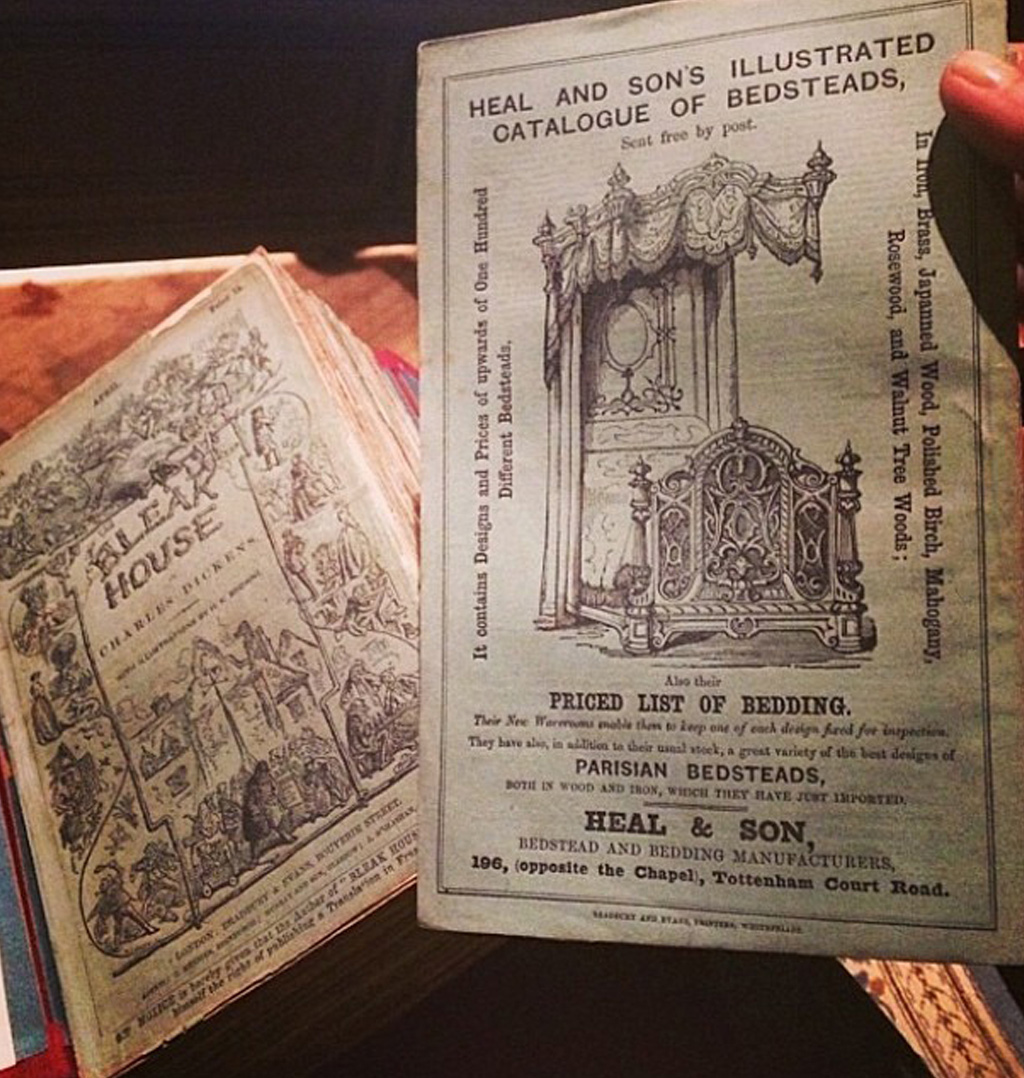 APRIL.
BLEAK
HOUSE
BY
CHARLES DICKENS.
WITH ILLUSTRATIONS BY H. K. BROWNE.
LONDON: BRADBURY & EVANS, BOUVERIE STREET.
NOTICE is hereby given that the Author of "BLEAK HOUSE"
himself the right of publishing a Translation in
HEAL AND SON'S ILLUSTRATED
CATALOGUE OF BEDSTEADS,
Sent free by post.
It contains Designs and Prices of upwards of One Hundred
Different Bedsteads,
In Iron, Brass, Japanned Wood, Polished Birch, Mahogany,
Rosewood, and Walnut Tree Woods;
Also their
PRICED LIST OF BEDDING.
Their New Warerooms enable them to keep one of each design fixed for inspection.
They have also, in addition to their usual stock, a great variety of the best designs of
PARISIAN BEDSTEADS,
BOTH IN WOOD AND IRON, WHICH THEY HAVE JUST IMPORTED.
HEAL & SON,
BEDSTEAD AND BEDDING MANUFACTURERS,
196, (opposite the Chapel), Tottenham Court Road.
BRADBURY AND EVANS, PRINTERS, WHITEFRIARS.